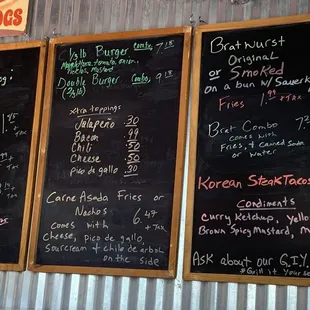 OGS
1/3 lb Burger Combo 7.19
Mayo, tomato, onion,
Pickles, Mustard
Double Burger Combo 9.19
(2/3 lb)
xtra toppings
Jalapeño .30
Bacon .99
Chili .50
Cheese .50
pico de gallo .30
Carne Asada Fries or
Nachos 6.47
+ Tax
comes with
Cheese, pico de gallo,
sourcream + chile de arbol
on the side
Bratwurst
Original
or Smoked
on a bun w/ Sauerk
Fries 1.99 + TAX
Brat Combo 7.
comes with
Fries, & canned Soda
or water
Korean Steak Tacos
Condiments
Curry Ketchup, yello
Brown Spicy Mustard, M
Ask about our G.I.Y
#Grill it Yourse